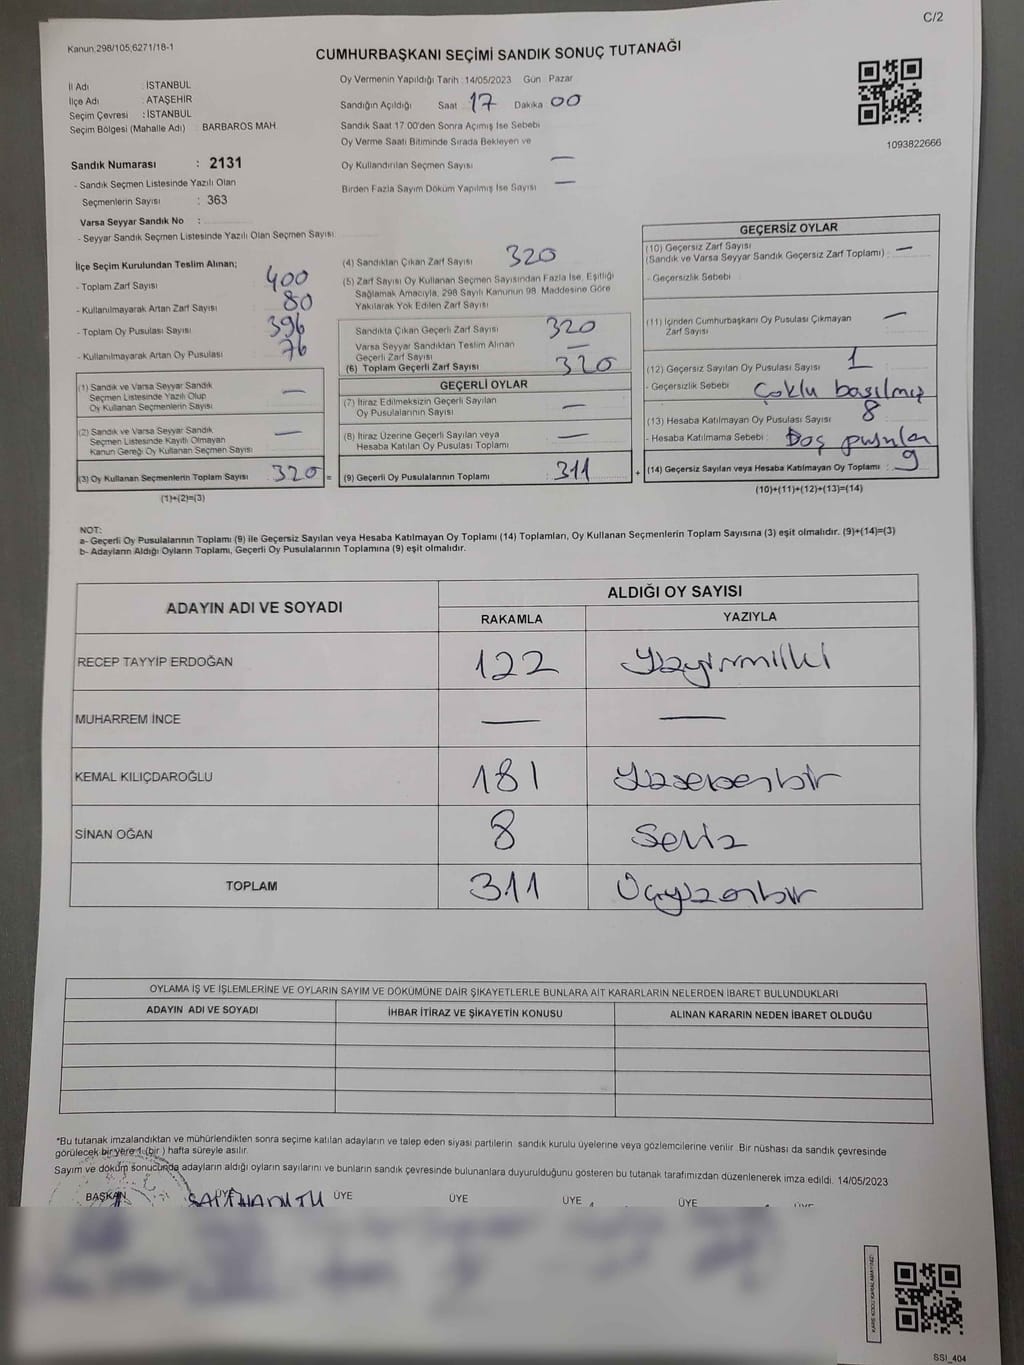 C/2
Kanun.298/105,6271/18-1
CUMHURBAŞKANI SEÇİMİ SANDIK SONUÇ TUTANAĞI
İl Adı : İSTANBUL
İlçe Adı : ATAŞEHİR
Seçim Çevresi : İSTANBUL
Seçim Bölgesi (Mahalle Adı) BARBAROS MAH
Oy Vermenin Yapıldığı Tarih :14/05/2023 Gün Pazar
Sandığın Açıldığı Saat 17 Dakika 00
Sandık Saat 17.00'den Sonra Açımış İse Sebebi
Oy Verme Saati Bitiminde Sırada Bekleyen ve
Oy Kullandırılan Seçmen Sayısı —
Birden Fazla Sayım Döküm Yapılmış İse Sayısı —
1093822666
Sandık Numarası : 2131
- Sandık Seçmen Listesinde Yazılı Olan
Seçmenlerin Sayısı : 363
Varsa Seyyar Sandık No :
- Seyyar Sandık Seçmen Listesinde Yazılı Olan Seçmen Sayısı
İlçe Seçim Kurulundan Teslim Alınan;
- Toplam Zarf Sayısı 400
- Kullanılmayarak Artan Zarf Sayısı 80
- Toplam Oy Pusulası Sayısı 396
- Kullanılmayarak Artan Oy Pusulası 76
(1) Sandık ve Varsa Seyyar Sandık
Seçmen Listesinde Yazılı Olup
Oy Kullanan Seçmenlerin Sayısı —
(2) Sandık ve Varsa Seyyar Sandık
Seçmen Listesinde Kayıtlı Olmayan
Kanun Gereği Oy Kullanan Seçmen Sayısı —
(3) Oy Kullanan Seçmenlerin Toplam Sayısı : 320 =
(1)+(2)=(3)
(4) Sandıktan Çıkan Zarf Sayısı 320
(5) Zarf Sayısı Oy Kullanan Seçmen Sayısından Fazla İse, Eşitliği
Sağlamak Amacıyla, 298 Sayılı Kanunun 98. Maddesine Göre
Yakılarak Yok Edilen Zarf Sayısı
Sandıkta Çıkan Geçerli Zarf Sayısı 320
Varsa Seyyar Sandıktan Teslim Alınan
Geçerli Zarf Sayısı —
(6) Toplam Geçerli Zarf Sayısı 320
GEÇERLİ OYLAR
(7) İtiraz Edilmeksizin Geçerli Sayılan
Oy Pusulalarının Sayısı —
(8) İtiraz Üzerine Geçerli Sayılan veya
Hesaba Katılan Oy Pusulası Toplamı —
(9) Geçerli Oy Pusulalarının Toplamı : 311 +
GEÇERSİZ OYLAR
(10) Geçersiz Zarf Sayısı
(Sandık ve Varsa Seyyar Sandık Geçersiz Zarf Toplamı) : —
- Geçersizlik Sebebi
(11) İçinden Cumhurbaşkanı Oy Pusulası Çıkmayan
Zarf Sayısı —
(12) Geçersiz Sayılan Oy Pusulası Sayısı 1
- Geçersizlik Sebebi : Çoklu basılmış
(13) Hesaba Katılmayan Oy Pusulası Sayısı 8
- Hesaba Katılmama Sebebi : Boş pusula
(14) Geçersiz Sayılan veya Hesaba Katılmayan Oy Toplamı : 9
(10)+(11)+(12)+(13)=(14)
NOT:
a- Geçerli Oy Pusulalarının Toplamı (9) ile Geçersiz Sayılan veya Hesaba Katılmayan Oy Toplamı (14) Toplamları, Oy Kullanan Seçmenlerin Toplam Sayısına (3) eşit olmalıdır. (9)+(14)=(3)
b- Adayların Aldığı Oyların Toplamı, Geçerli Oy Pusulalarının Toplamına (9) eşit olmalıdır.
ADAYIN ADI VE SOYADI
ALDIĞI OY SAYISI
RAKAMLA YAZIYLA
RECEP TAYYİP ERDOĞAN 122 Yüzyirmiiki
MUHARREM İNCE — —
KEMAL KILIÇDAROĞLU 181 Yüzseksenbir
SİNAN OĞAN 8 Sekiz
TOPLAM 311 Üçyüzonbir
OYLAMA İŞ VE İŞLEMLERİNE VE OYLARIN SAYIM VE DÖKÜMÜNE DAİR ŞİKAYETLERLE BUNLARA AİT KARARLARIN NELERDEN İBARET BULUNDUKLARI
ADAYIN ADI VE SOYADI İHBAR İTİRAZ VE ŞİKAYETİN KONUSU ALINAN KARARIN NEDEN İBARET OLDUĞU
*Bu tutanak imzalandıktan ve mühürlendikten sonra seçime katılan adayların ve talep eden siyasi partilerin sandık kurulu üyelerine veya gözlemcilerine verilir. Bir nüshası da sandık çevresinde
görülecek bir yere 1 (bir ) hafta süreyle asılır.
Sayım ve döküm sonucunda adayların aldığı oyların sayılarını ve bunların sandık çevresinde bulunanlara duyurulduğunu gösteren bu tutanak tarafımızdan düzenlenerek imza edildi. 14/05/2023
BAŞKAN ÜYE ÜYE ÜYE ÜYE ÜYE ÜYE
SSI_404